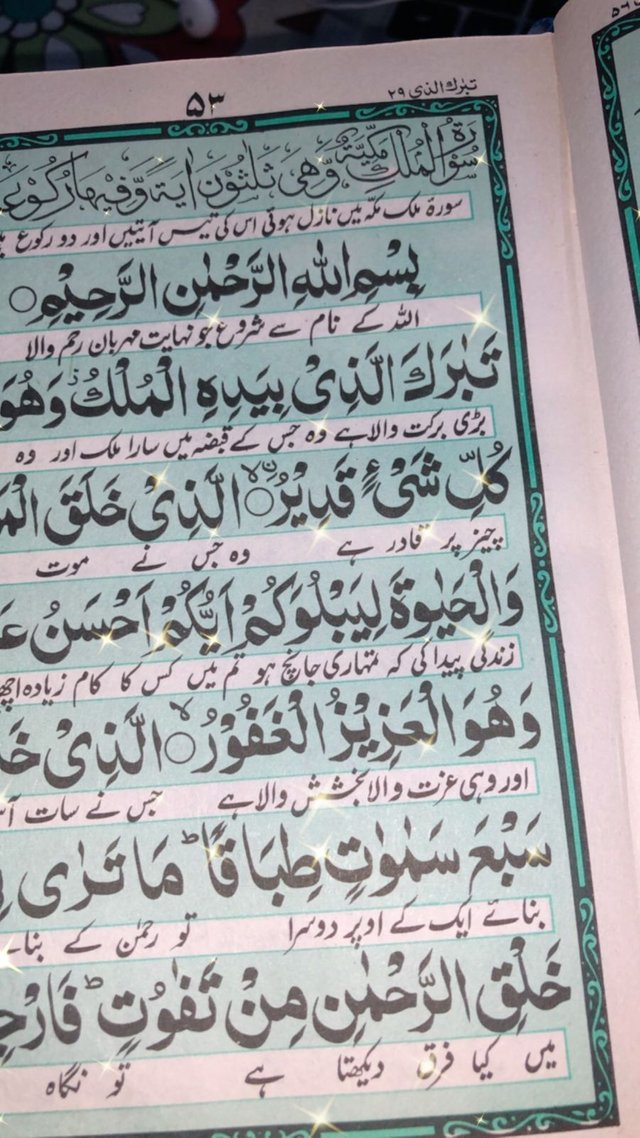 تبٰرك الذی ۲۹
۵۳
سُوْرَةُ الْمُلْكِ مَكِّيَّةٌ وَّهِیَ ثَلٰثُوْنَ اٰيَةً وَّفِيْهَا رُكُوْعَ
سورۂ ملک مکّہ میں نازل ہوئی اس کی تیس آیتیں اور دو رکوع
بِسْمِ اللّٰهِ الرَّحْمٰنِ الرَّحِيْمِ ○
اللہ کے نام سے شروع جو نہایت مہربان رحم والا
تَبٰرَكَ الَّذِیْ بِيَدِهِ الْمُلْكُ ز وَهُوَ
بڑی برکت والا ہے وہ جس کے قبضہ میں سارا ملک اور وہ
كُلِّ شَیْءٍ قَدِيْرُ ۨ○ۙ الَّذِیْ خَلَقَ الْمَ
چیز پر قادر ہے وہ جس نے موت
وَالْحَيٰوةَ لِيَبْلُوَكُمْ اَيُّكُمْ اَحْسَنُ عَ
زندگی پیدا کی کہ تمہاری جانچ ہو تم میں کس کا کام زیادہ اچھ
وَهُوَ الْعَزِيْزُ الْغَفُوْرُ ○ۙ الَّذِیْ خَ
اور وہی عزت والا بخشش والا ہے جس نے سات آس
سَبْعَ سَمٰوٰتٍ طِبَاقًا ؕ مَا تَرٰی فِ
بنائے ایک کے اوپر دوسرا تو رحمٰن کے بنا
خَلْقِ الرَّحْمٰنِ مِنْ تَفٰوُتٍ ؕ فَارْجِ
میں کیا فرق دیکھتا ہے تو نگاہ